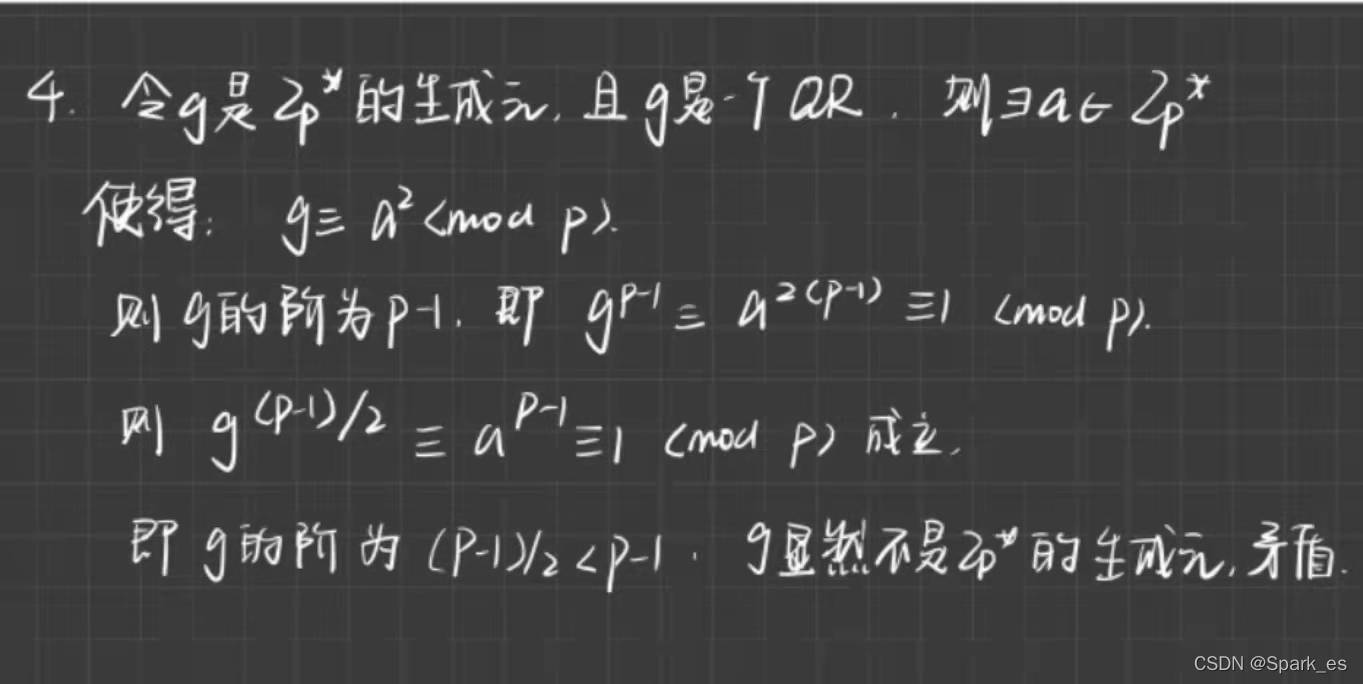 4. 令g是Zp*的生成元, 且g是一个QR. 则∃a∈Zp*
使得: g≡a²(mod p).
则g的阶为p-1. 即 g^{p-1}≡a^{2(p-1)}≡1 (mod p).
则 g^{(p-1)/2}≡a^{p-1}≡1 (mod p) 成立.
即g的阶为(p-1)/2<p-1. g显然不是Zp*的生成元, 矛盾.
CSDN @Spark_es